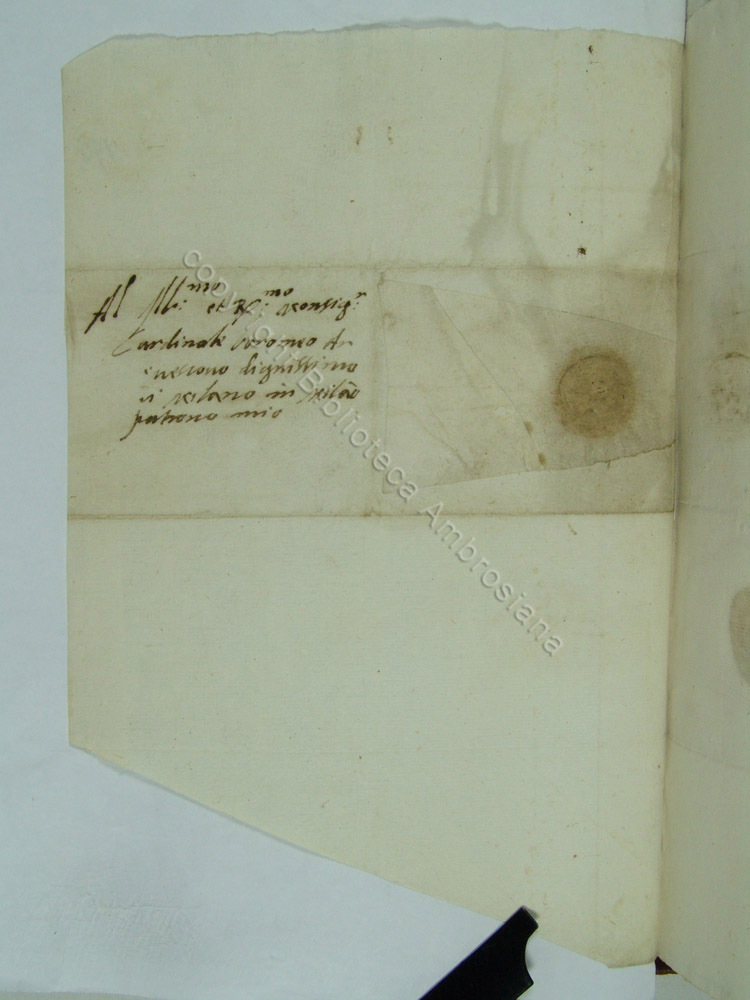 Al Ill:mo et R:mo Monsig.r
Cardinale boromeo Ar
civescovo dignissimo
di Milano in Milāo
patrono mio
copyright Biblioteca Ambrosiana